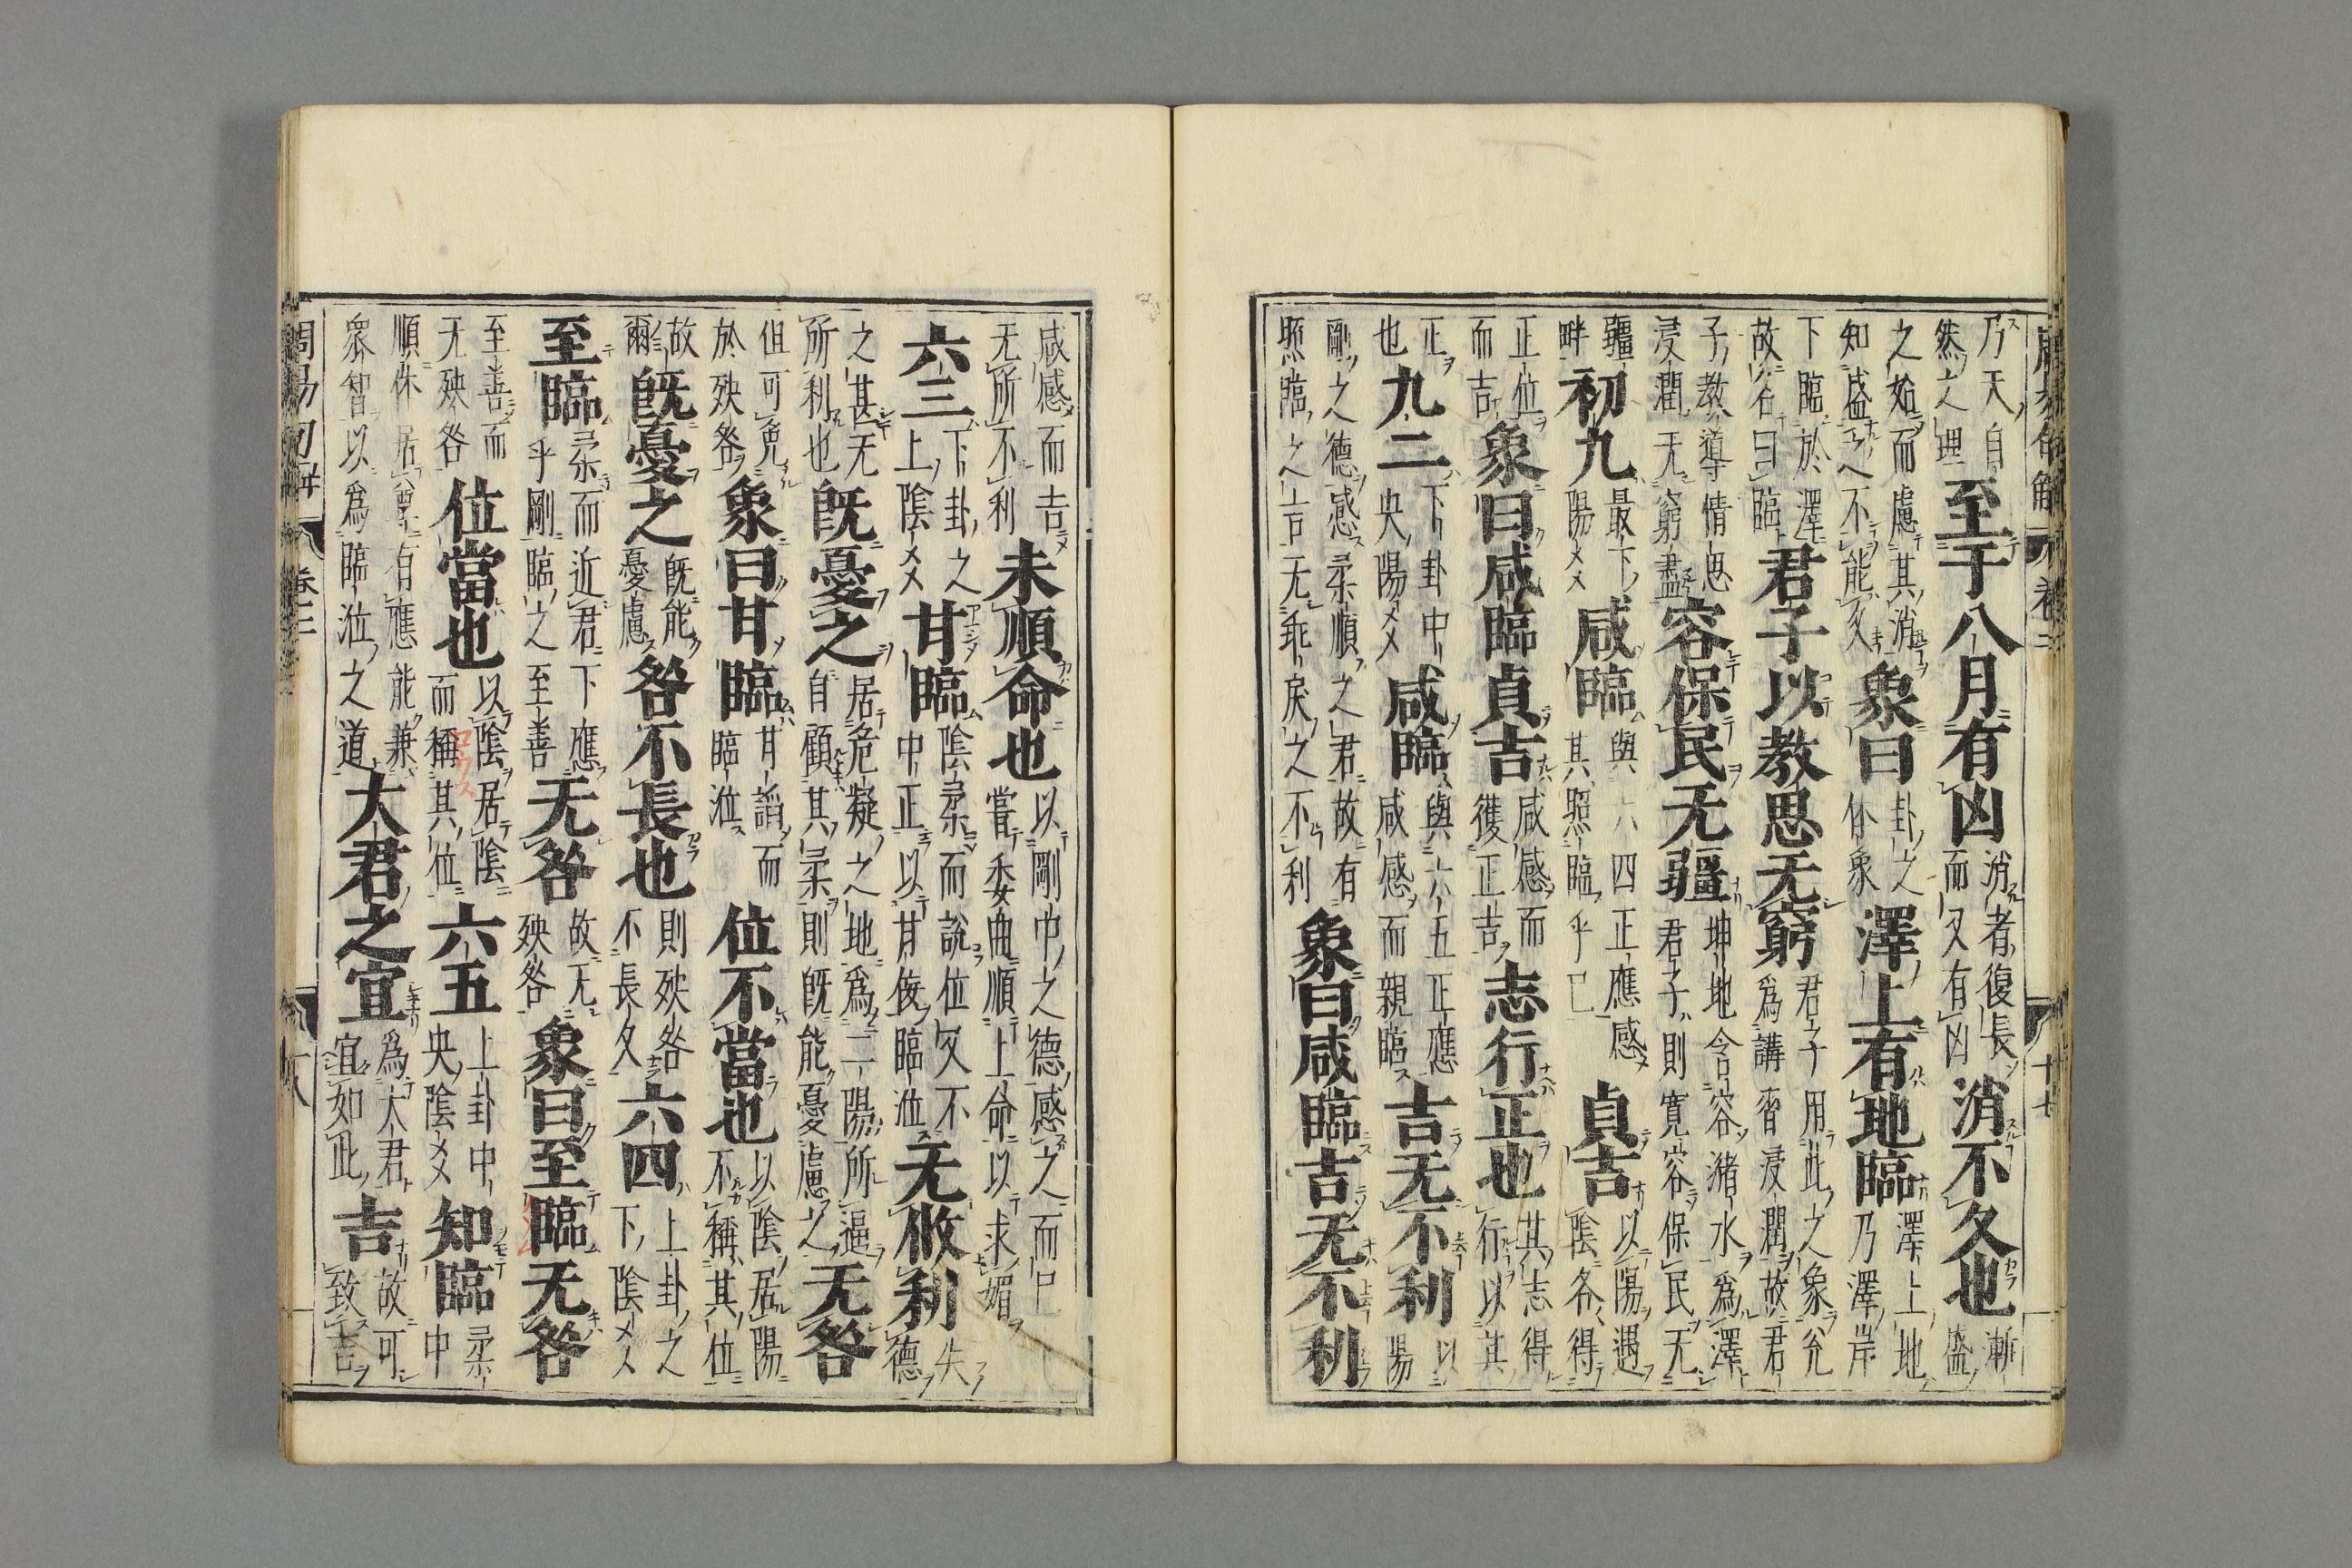 周易句解 卷三 十七
乃天自然之理至于八月有凶消者復長而又有凶消不久也漸盛
之始而慮其消知盛之不能久象曰卦之体象澤上有地臨澤上地乃澤岸
下臨於澤故谷曰臨君子以教思无窮君子用此之象兌爲講習浸潤故君
子教導情思浸潤无窮盡容保民无疆坤地含容瀦水爲澤君子則寬容保民无
疆畔初九最下陽爻咸臨與六四正應感其照臨乎已貞吉以陽遇陰各得
正位而吉象曰咸臨貞吉咸感而獲正吉志行正也其志得行以其
正也九二下卦中央陽爻咸臨與六五正應咸感而親臨吉无不利以陽
剛之德感柔順之君故有照臨之吉无乖戾之不利象曰咸臨吉无不利
咸感而吉无所不利未順命也以剛中之德感之而已嘗委曲順上命以求媚
六三下卦之上陰爻甘臨陰柔而說位又不中正以甘佞臨涖无攸利失德
之甚无所利也旣憂之居危疑之地爲二陽所逼自顧其柔則旣能憂慮之无咎
但可免於殃咎象曰甘臨甘謟而臨涖位不當也以陰居陽不稱其位
故爾旣憂之旣能憂慮咎不長也則殃咎不長久六四上卦之下陰爻
至臨柔而近君下應乎剛臨之至善无咎故无殃咎象曰至臨无咎
至善而无殃咎位當也以陰居陰而稱其位六五上卦中央陰爻知臨柔中
順休居尊有應能兼衆智以爲臨涖之道大君之宜爲大君宜如此吉故可致吉
周易句解 卷三 十八